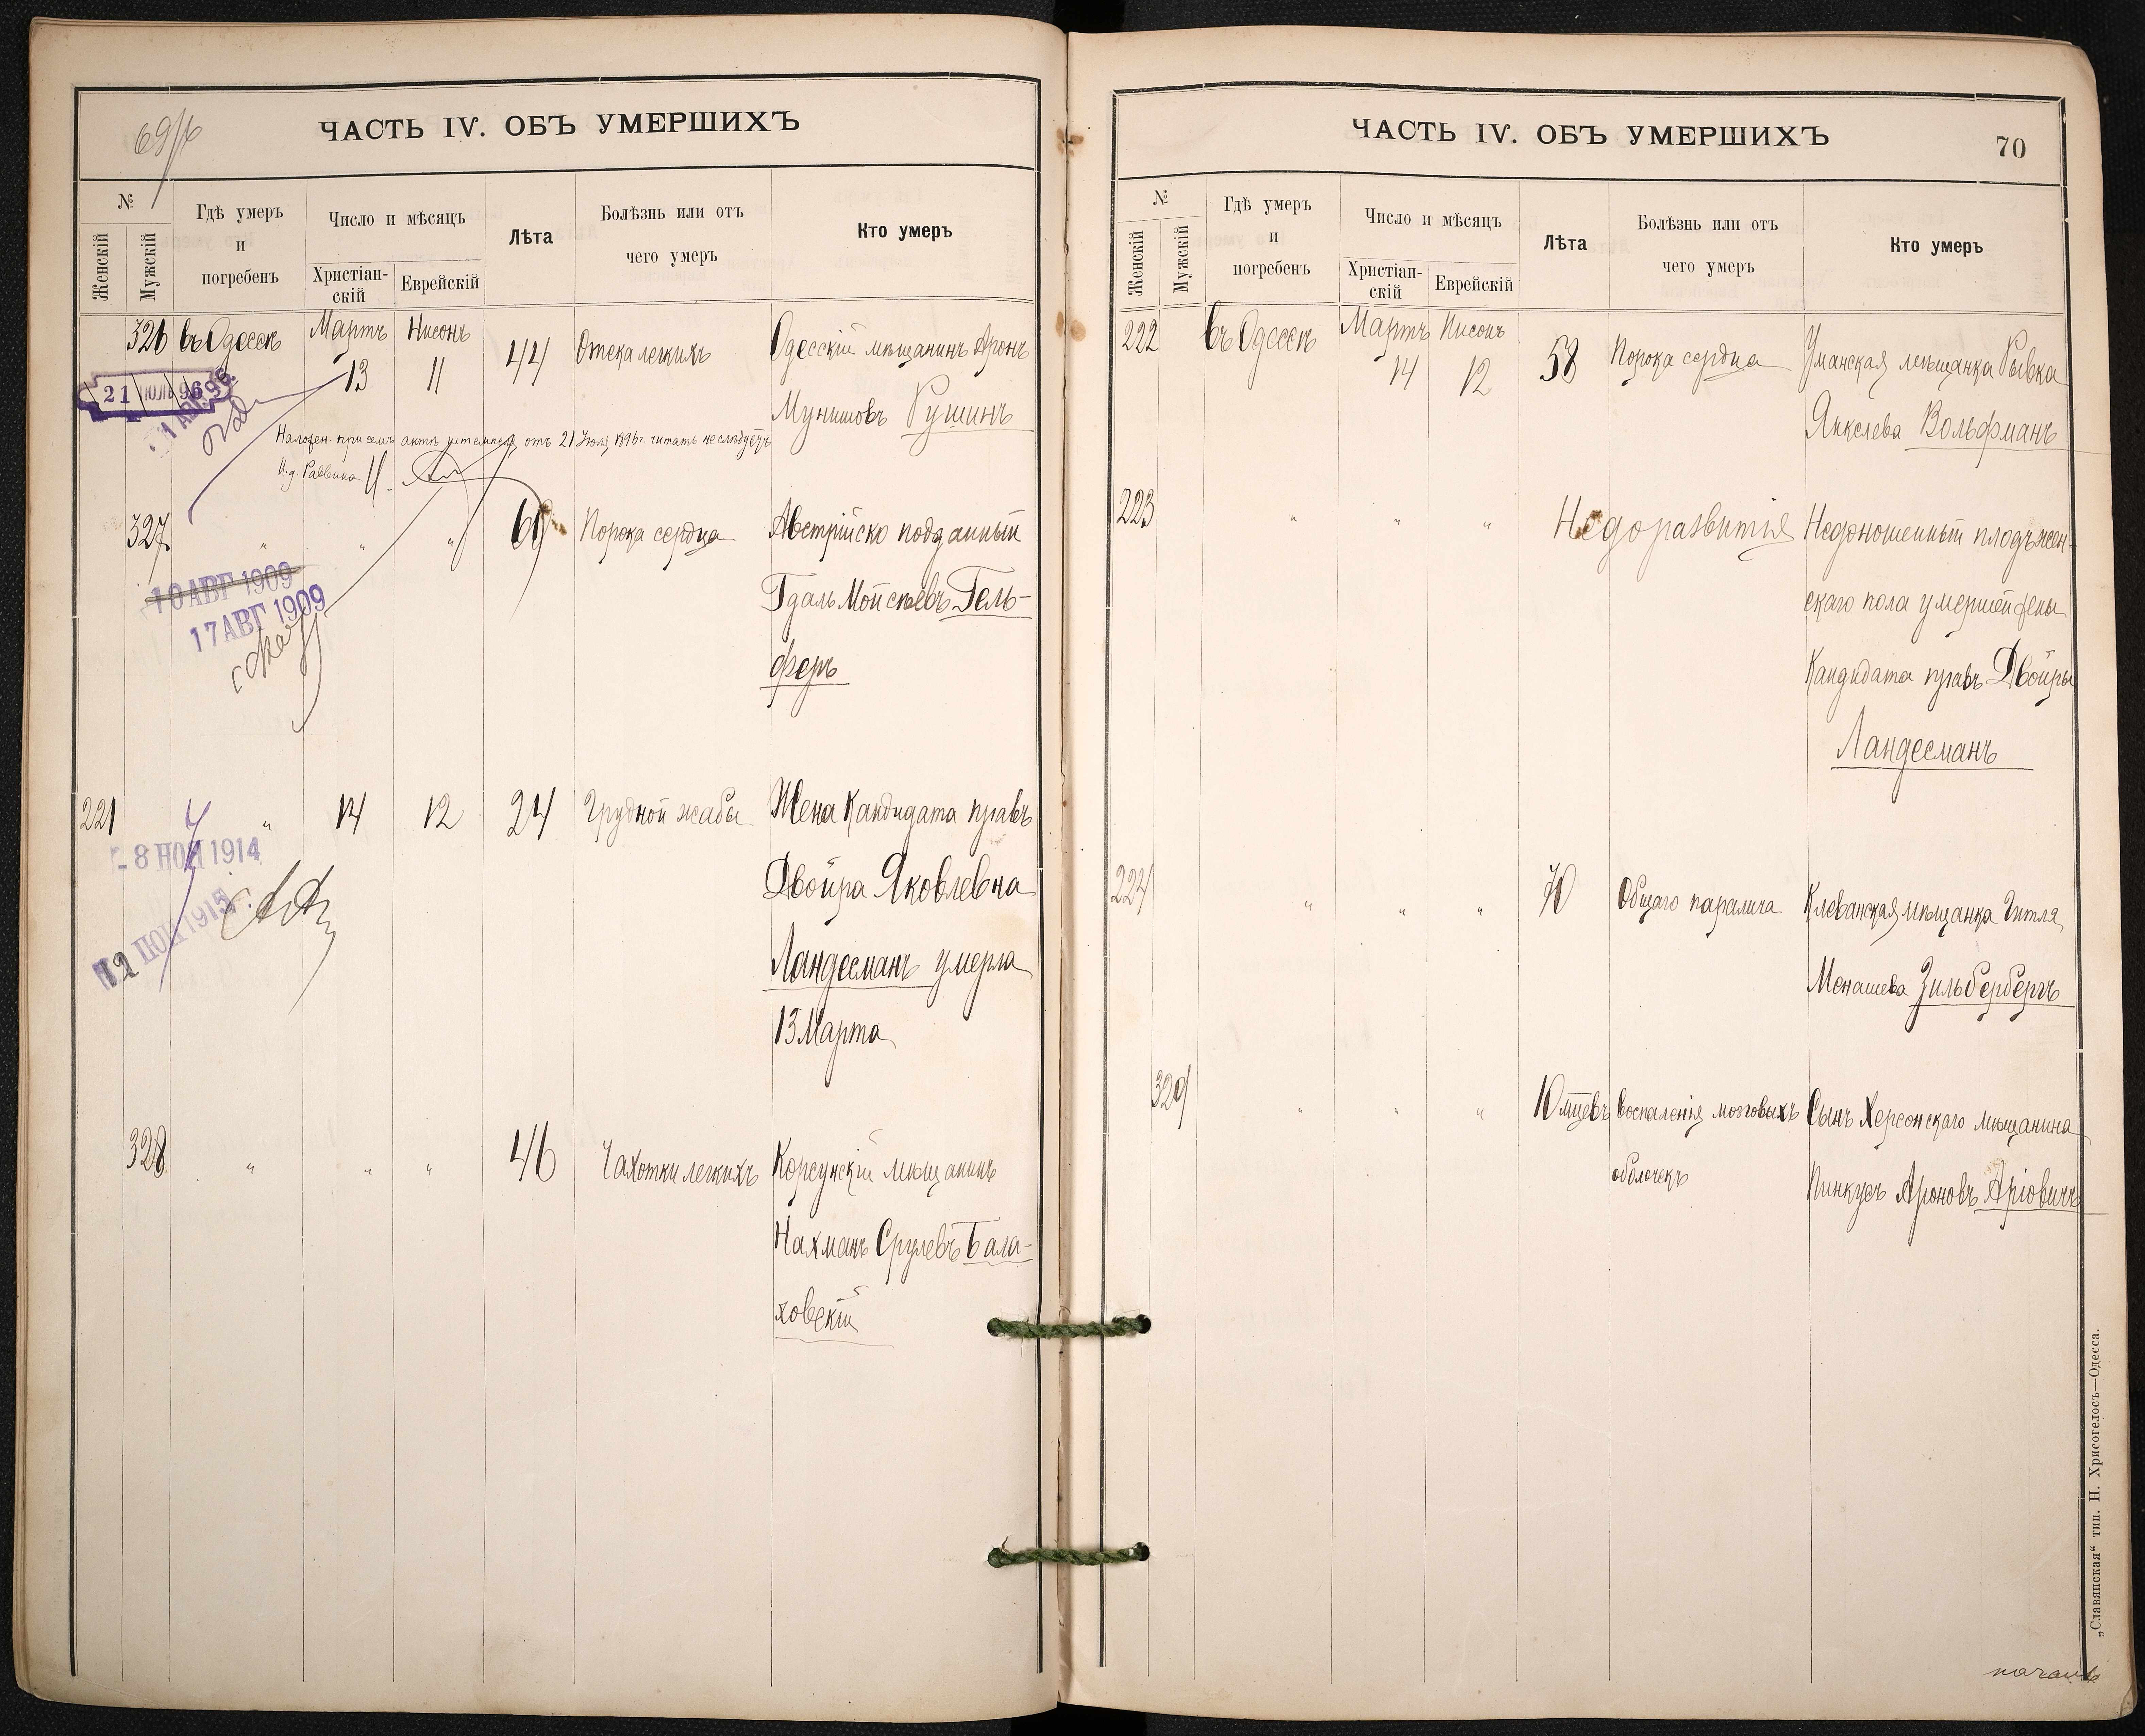 69/6
ЧАСТЬ IV. ОБЪ УМЕРШИХЪ
№
Женскій
Мужскій
Гдѣ умеръ
и
погребенъ
Число и мѣсяцъ
Христіан-
скій
Еврейскій
Лѣта
Болѣзнь или отъ
чего умеръ
Кто умеръ
326 въ Одессѣ Мартъ Нисонъ 44 Отека легкихъ Одесскій мѣщанинъ Аронъ
13 11
Мунишовъ Рушинъ
21 ІЮЛЬ 96
Наложен. при семъ актѣ штемпель отъ 21 Іюля 1896 г. читать не слѣдуетъ
И. д. Раввина
327 " " " 60 Порока сердца Австрійско подданный
Гдаль Мойсеевъ Гель-
феръ
10 АВГ 1909
17 АВГ 1909
221 " 14 12 24 Грудной жабы Жена Кандидата правъ
Двойра Яковлевна
Ландесманъ умерла
13 Марта
8 1914
12 1915
328 " " " 46 Чахотки легкихъ Корсунскій мѣщанинъ
Нахманъ Срулевъ Бала-
ховскій
ЧАСТЬ IV. ОБЪ УМЕРШИХЪ
70
№
Женскій
Мужскій
Гдѣ умеръ
и
погребенъ
Число и мѣсяцъ
Христіан-
скій
Еврейскій
Лѣта
Болѣзнь или отъ
чего умеръ
Кто умеръ
222 въ Одессѣ Мартъ Нисонъ 58 Порока сердца Уманская мѣщанка Рывка
14 12
Янкелева Вольфманъ
223 " " " Недоразвитія Недоношенный плодъ жен-
скаго пола умершей жены
Кандидата правъ Двойры
Ландесманъ
224 " " " 70 Общаго паралича Клеванская мѣщанка Гитля
Менашева Зильбербергъ
329 " " " 10 мцевъ Воспаленія мозговыхъ Сынъ Херсонскаго мѣщанина
оболочекъ Пинкусъ Ароновъ Аріовичъ
„Славянская“ тип. Н. Хрисогелосъ—Одесса.